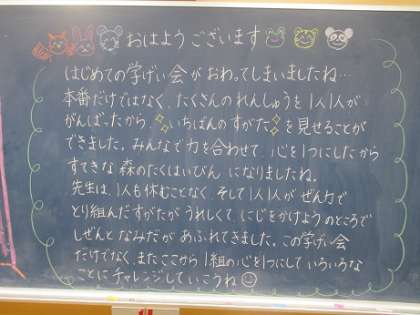 おはようございます
はじめての学げい会がおわってしまいましたね…
本番だけではなく、たくさんのれんしゅうを1人1人が
がんばったから いちばんのすがた を見せることが
できました。みんなで力を合わせて 心を1つにしたから
すてきな 森のたくはいびん になりましたね。
先生は、1人も休むことなく、そして1人1人が ぜん力で
とり組んだすがたが うれしくて にじをかけようのところで
しぜんと なみだが あふれてきました。この学げい会
だけでなく、またここから 1組の心を1つにして いろいろな
ことに チャレンジしていこうね